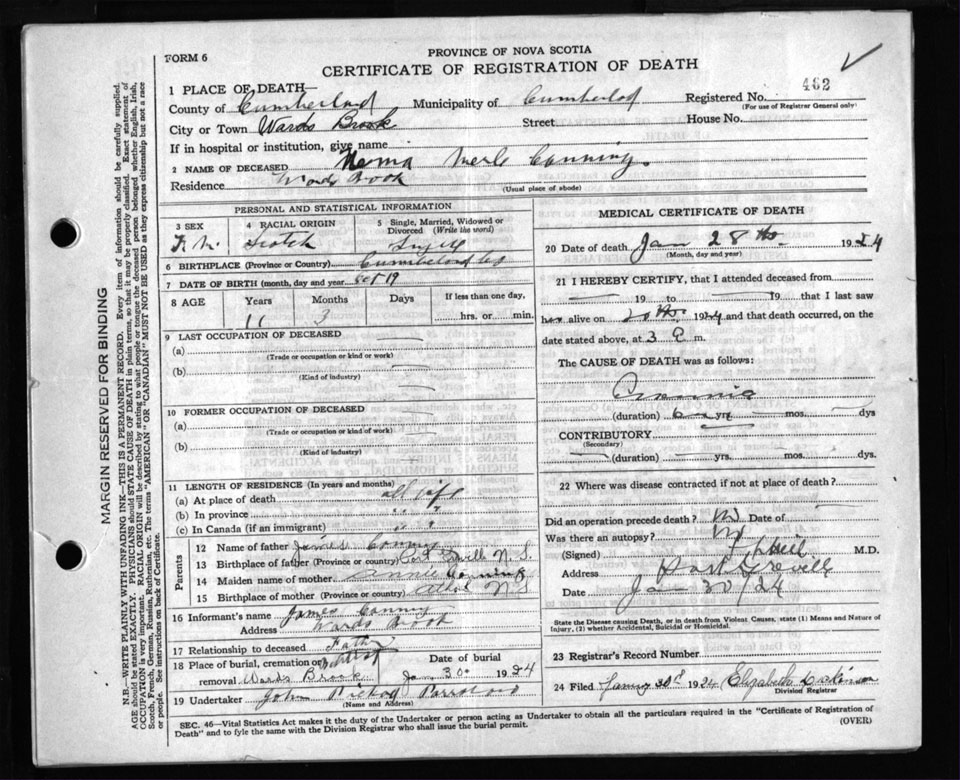 FORM 6
PROVINCE OF NOVA SCOTIA
CERTIFICATE OF REGISTRATION OF DEATH
✓
1 PLACE OF DEATH—
462
County of Cumberland Municipality of Cumberland Registered No.
(For use of Registrar General only)
City or Town Wards Brook Street House No.
If in hospital or institution, give name
2 NAME OF DECEASED Merle Canning
Residence Wards Brook
(Usual place of abode)
PERSONAL AND STATISTICAL INFORMATION
3 SEX 4 RACIAL ORIGIN 5 Single, Married, Widowed or Divorced (Write the word)
Scotch Single
6 BIRTHPLACE (Province or Country) Cumberland Co
7 DATE OF BIRTH (month, day and year)
8 AGE Years Months Days If less than one day,
11 3 hrs. or min.
9 LAST OCCUPATION OF DECEASED
(a)
(Trade or occupation or kind or work)
(b)
(Kind of industry)
10 FORMER OCCUPATION OF DECEASED
(a)
(Trade or occupation or kind of work)
(b)
(Kind of industry)
11 LENGTH OF RESIDENCE (In years and months)
(a) At place of death all life
(b) In province " "
(c) In Canada (if an immigrant) " "
Parents
12 Name of father James Canning
13 Birthplace of father (Province or Country) N. S.
14 Maiden name of mother Annie Canning
15 Birthplace of mother (Province or country) N S
16 Informant's name James Canning
Address Wards Brook
17 Relationship to deceased Father
18 Place of burial, cremation or removal Wards Brook
Date of burial
Jan 30 1924
19 Undertaker John Parrsboro
(Name and Address)
MEDICAL CERTIFICATE OF DEATH
20 Date of death Jan 28th 1924
(Month, day and year)
21 I HEREBY CERTIFY, that I attended deceased from
— 19 to — 19 that I last saw
her alive on 1924 and that death occurred, on the
date stated above, at 3 P m.
The CAUSE OF DEATH was as follows:
(duration) yrs. — mos. — dys
CONTRIBUTORY
(Secondary)
(duration) yrs. mos. dys.
22 Where was disease contracted if not at place of death?
Did an operation precede death? No Date of
Was there an autopsy? No
(Signed) M.D.
Address Port Greville
Date Jan 30/24
State the Disease causing Death, or in death from Violent Causes, state (1) Means and Nature of Injury, (2) whether Accidental, Suicidal or Homicidal.
23 Registrar's Record Number
24 Filed 30th 1924 Elizabeth Dickinson
Division Registrar
SEC. 46—Vital Statistics Act makes it the duty of the Undertaker or person acting as Undertaker to obtain all the particulars required in the "Certificate of Registration of
Death" and to fyle the same with the Division Registrar who shall issue the burial permit. (OVER)
MARGIN RESERVED FOR BINDING
N.B.—WRITE PLAINLY WITH UNFADING INK—THIS IS A PERMANENT RECORD. Every item of information should be carefully supplied.
AGE should be stated EXACTLY. PHYSICIANS should STATE CAUSE OF DEATH in plain terms, so that it may be properly classified. Exact statement of
OCCUPATION is very important. RACIAL ORIGIN will be described by stating to what people or tongue the deceased person belonged whether English, Irish,
Scotch, French, German, Russian, Ruthenian, etc. The terms "AMERICAN" OR "CANADIAN" MUST NOT BE USED as they express citizenship but not a race
or people. See instructions on back of Certificate.